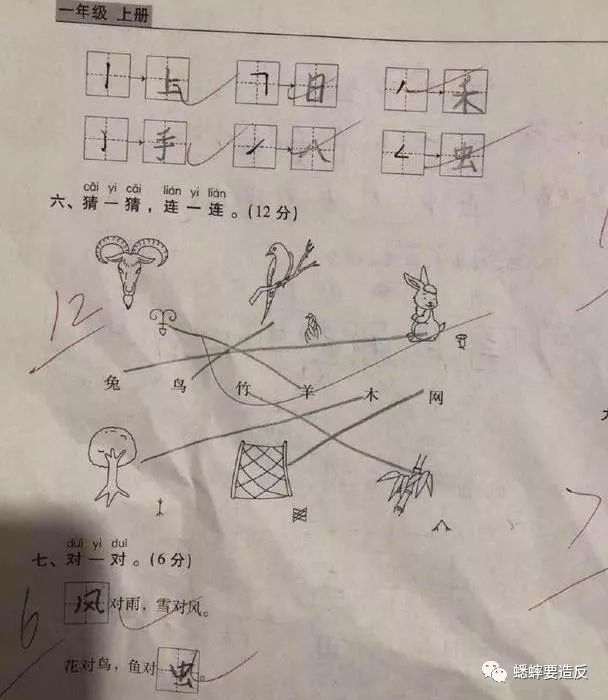 一年级 上册
丨 上 𠃍 日 丿 禾
亅 手 丿 八 𠃋 虫
cāi yi cāi lián yi lián
六、猜一猜，连一连。(12分)
12
兔 鸟 竹 羊 木 网
duì yi duì
七、对一对。(6分)
6
风对雨，雪对风。
花对鸟，鱼对虫。
蟋蟀要造反